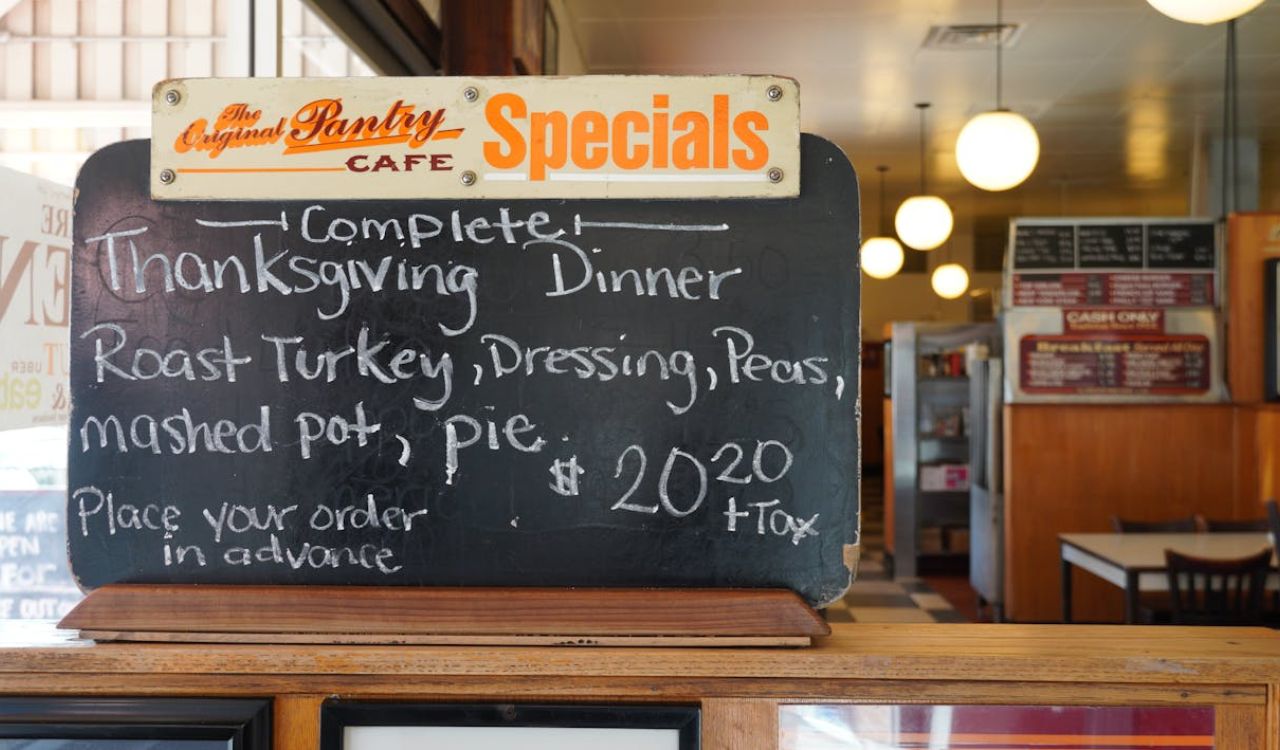 The Original Pantry CAFE
Specials
Complete
Thanksgiving Dinner
Roast Turkey, Dressing, Peas,
mashed pot, pie
$ 20 20
+Tax
Place your order
in advance
CASH ONLY
UBER